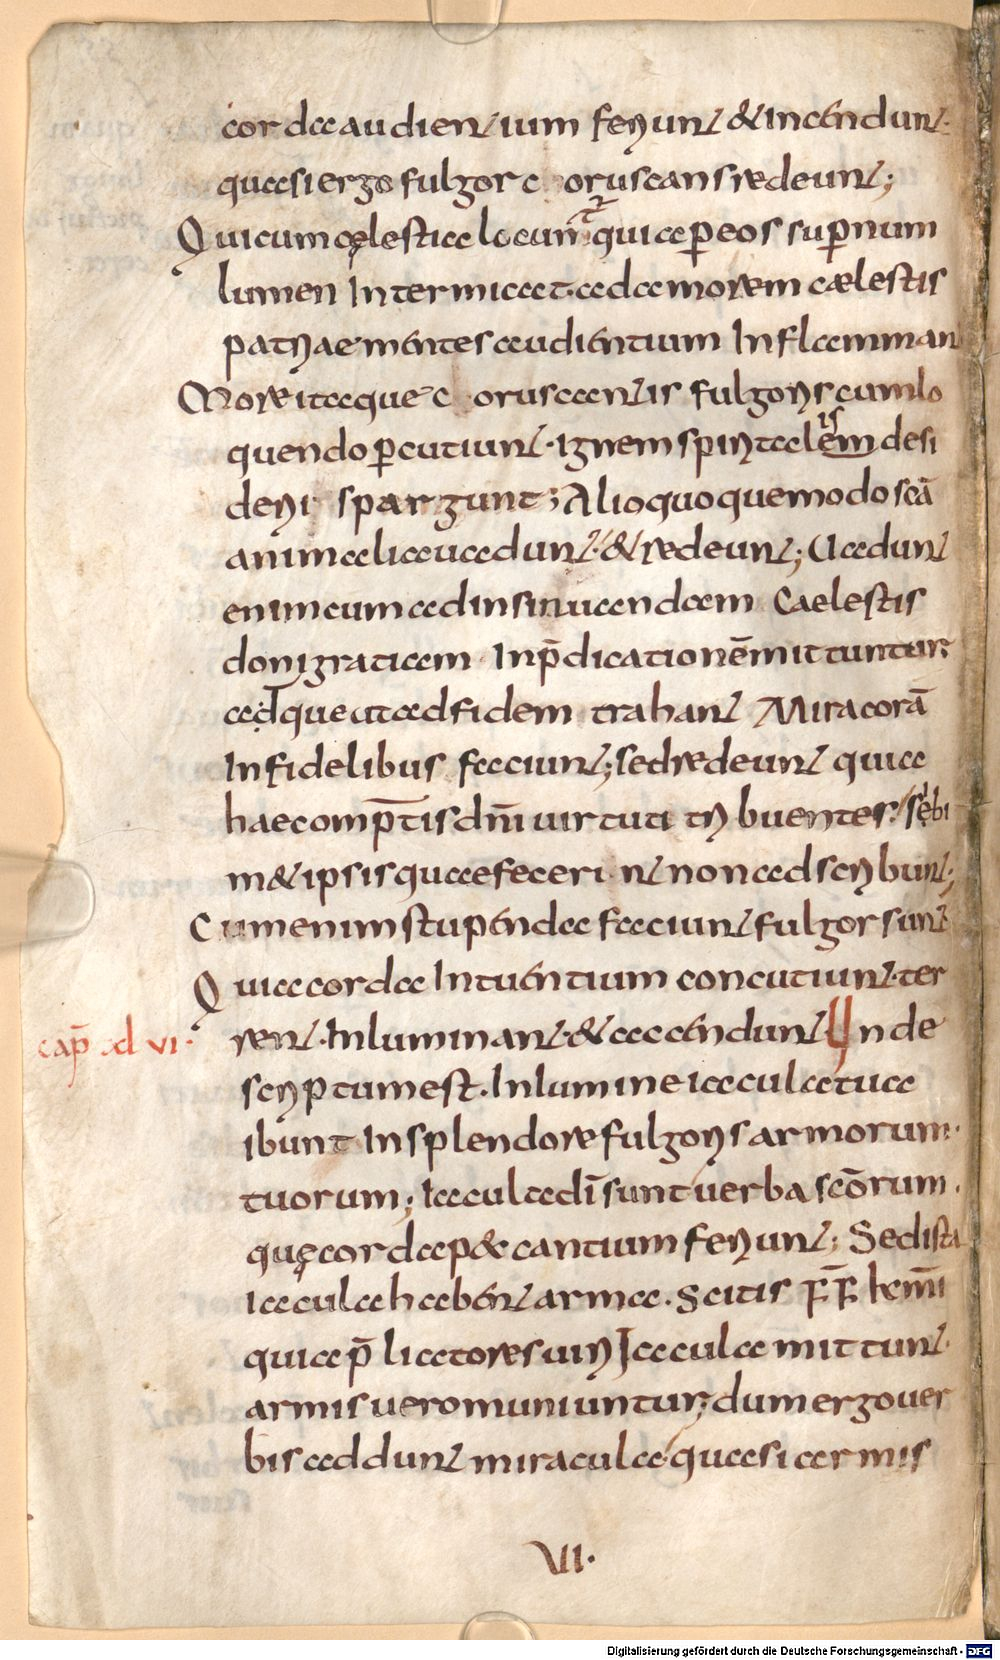 corda audientium feriunt & incendunt.
quasi ergo fulgor c oruscans redeunt;
Quicum cęlestia locunt quia p̄ eos sup̄num
lumen Intermicat. ad amorem cælestis
patriae mentes audientium Inflamman
More itaque c oruscantis fulgoris cum lo
quendo p̄cutiunt. ignem spiritalem desi
derii spargunt; Alio quoque modo scā
animalia uadunt. & redeunt; Uadunt
enim cum ad insinuandam Caelestis
doni gratiam Inp̄dicationēmittuntur;
adque ut ad fidem trahant Mira corā
Infidelibus faciunt; sed redeunt quia
haec omp̄tis dn̄i uirtuti tribuentes. sèbi
m&ipsis quae feceri nt non adscribunt;
Cum enim stupenda faciunt fulgor sunt
Quia corda Intuentium concutiunt. ter
rent. Inluminant. & accendunt Unde
cap̄ ad VI.
scriptum est. In lumine iacula tua
ibunt In splendore fulgoris armorum.
tuorum; Iacula dī sunt uerba scōrum.
quę corda p&cantium feriunt; Sed ista
Iacula habent arma. Scitis F̄F̄ kar̄mi
quia p̄liatores uiri Iacula mittunt.
armis uero muniuntur; dum ergo uer
bis addunt miracula quasi armis
VII.
Digitalisierung gefördert durch die Deutsche Forschungsgemeinschaft - DFG